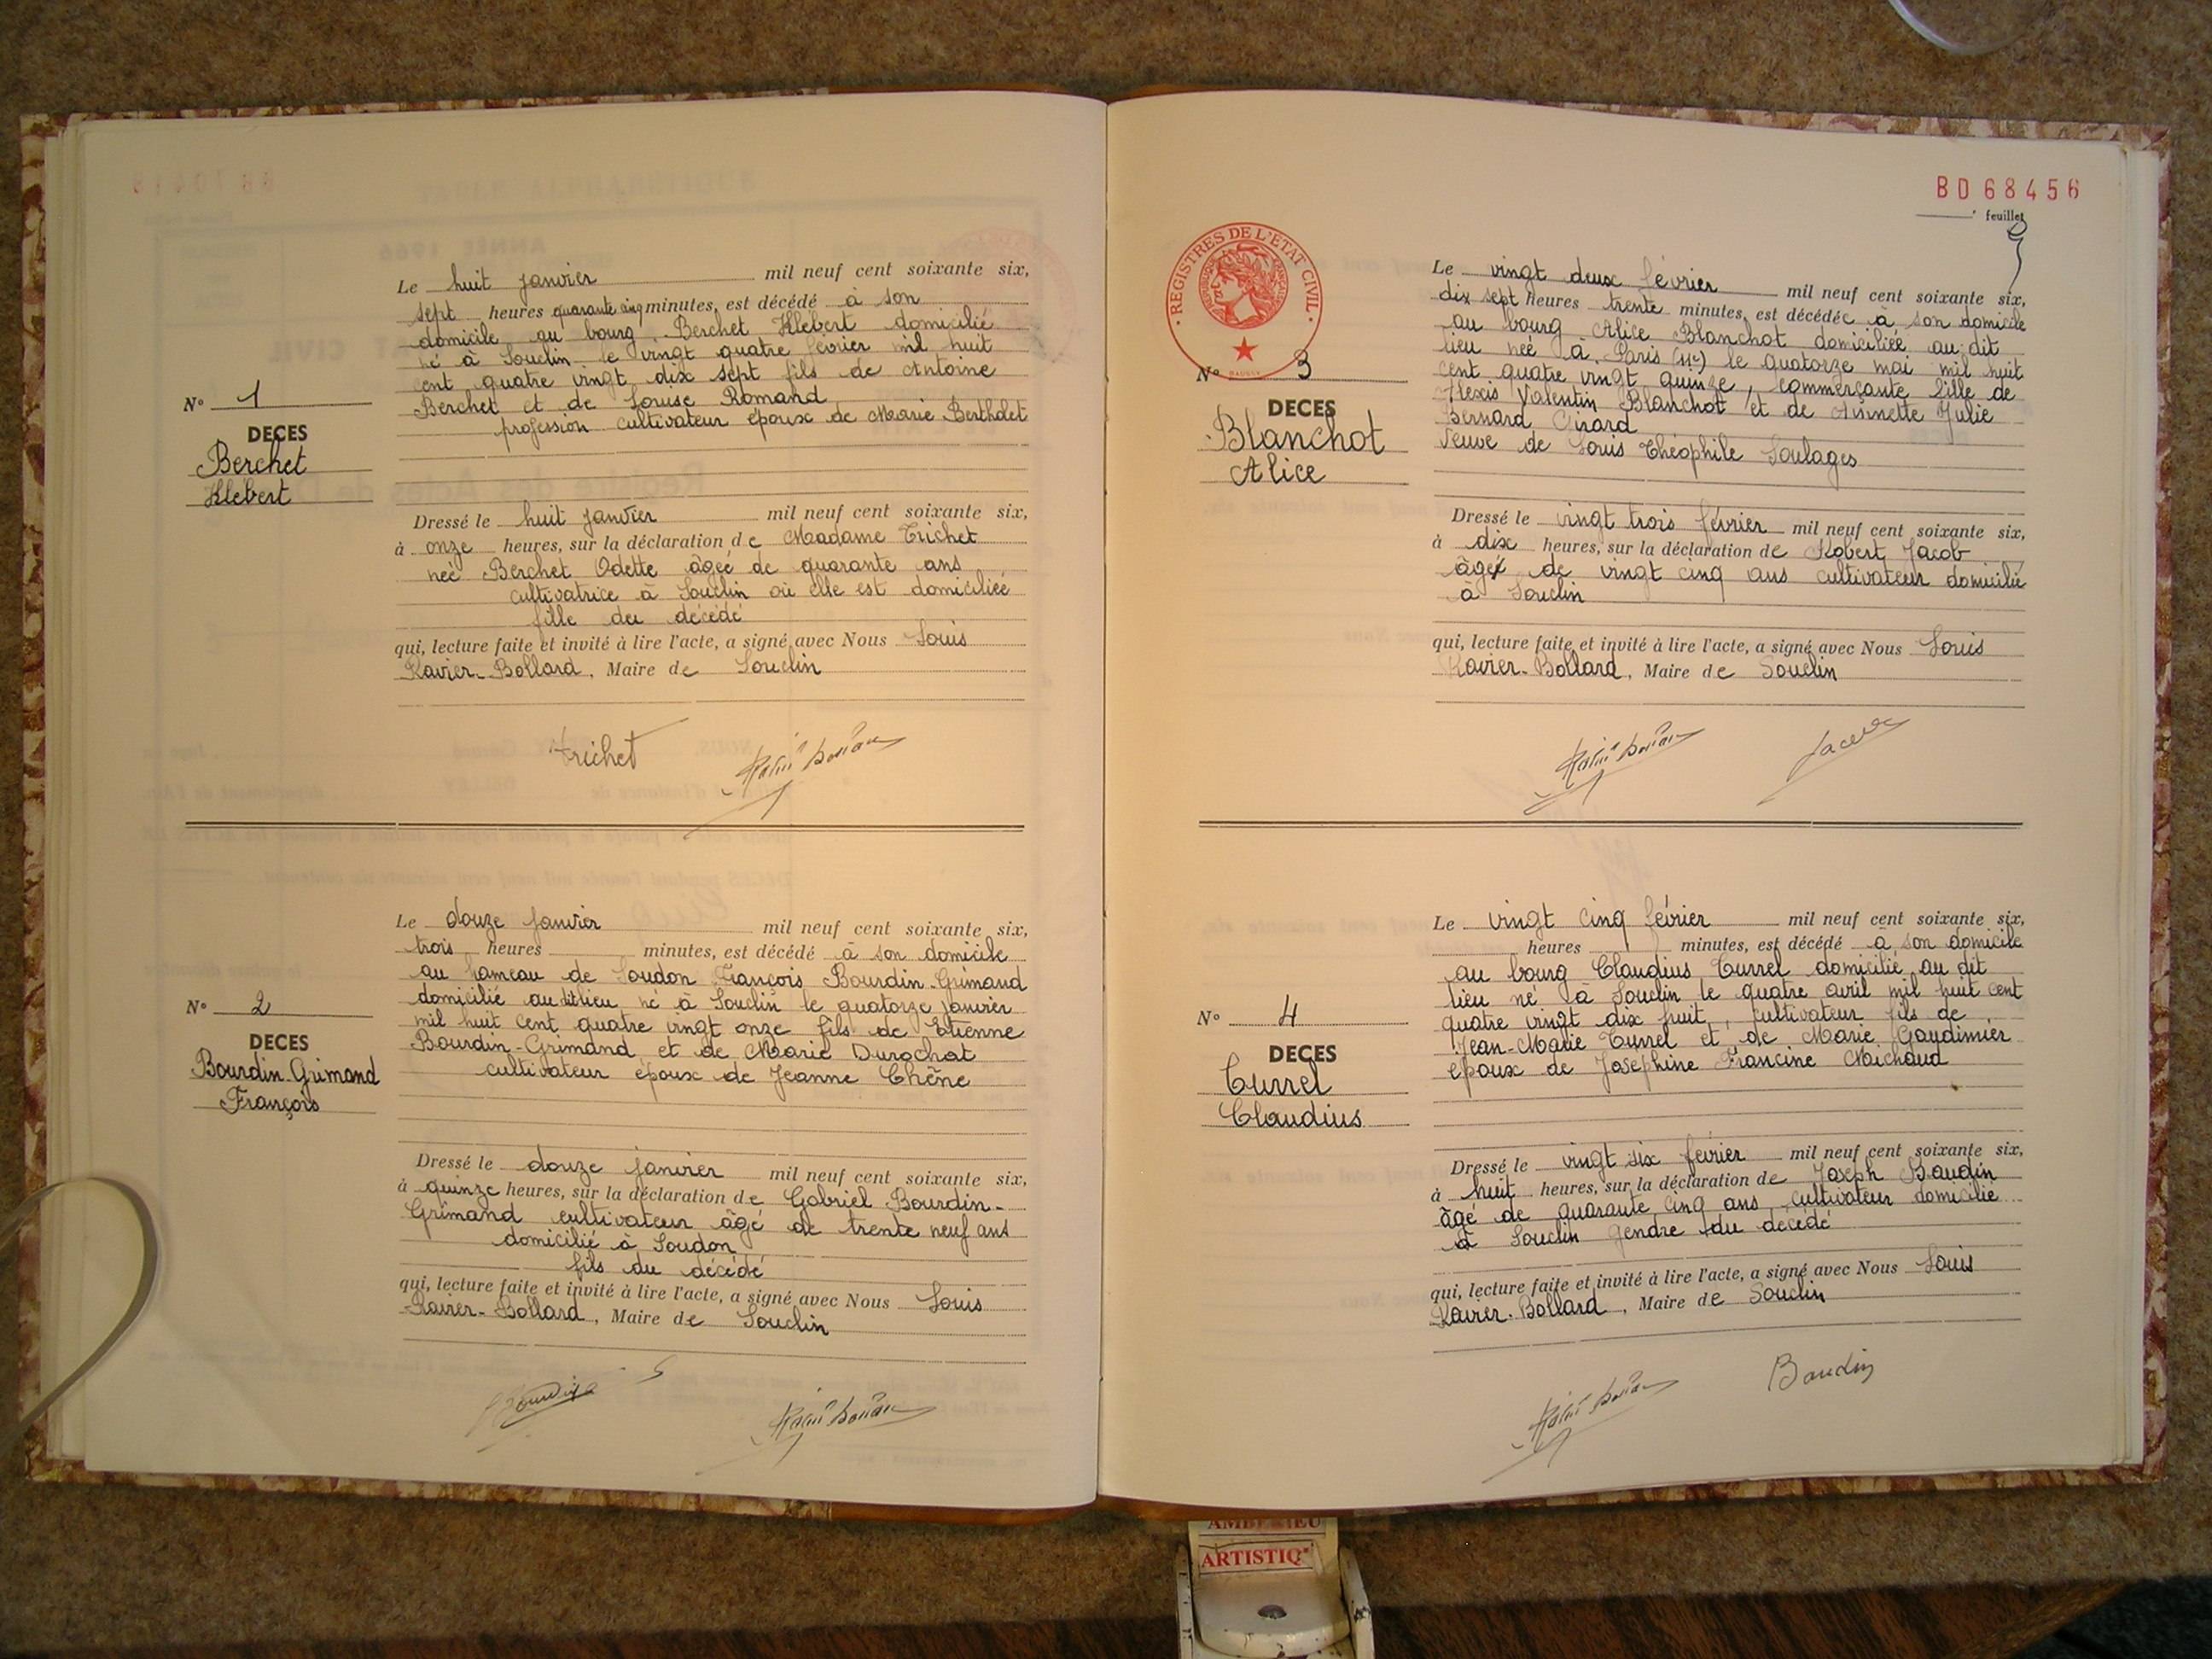 Le huit janvier mil neuf cent soixante six,
sept heures quarante cinq minutes, est décédé à son
domicile au bourg Berchet Klébert domicilié
né à Souclin le vingt quatre février mil huit
cent quatre vingt dix sept fils de Antoine
Berchet et de Louise Romand
profession cultivateur époux de Marie Berthelet
N° 1
DECES
Berchet
Klébert
Dressé le huit janvier mil neuf cent soixante six,
à onze heures, sur la déclaration de Madame Trichet
née Berchet Odette âgée de quarante ans
cultivatrice à Souclin où elle est domiciliée
fille du décédé
qui, lecture faite et invité à lire l'acte, a signé avec Nous Louis
Ravier-Bollard, Maire de Souclin
Trichet
Le douze janvier mil neuf cent soixante six,
trois heures minutes, est décédé à son domicile
au hameau de Soudon François Bourdin-Grimand
domicilié au dit lieu né à Souclin le quatorze janvier
mil huit cent quatre vingt onze fils de Etienne
Bourdin-Grimand et de Marie Durochat
cultivateur époux de Jeanne Chêne
N° 2
DECES
Bourdin-Grimand
François
Dressé le douze janvier mil neuf cent soixante six,
à quinze heures, sur la déclaration de Gabriel Bourdin-
Grimand cultivateur âgé de trente neuf ans
domicilié à Soudon
fils du décédé
qui, lecture faite et invité à lire l'acte, a signé avec Nous Louis
Ravier-Bollard, Maire de Souclin
BD 68456
feuillet
REGISTRES DE L'ETAT CIVIL
Le vingt deux février mil neuf cent soixante six,
dix sept heures trente minutes, est décédée à son domicile
au bourg Alice Blanchot domiciliée au dit
lieu née à Paris (11e) le quatorze mai mil huit
cent quatre vingt quinze, commerçante fille de
Alexis Valentin Blanchot et de Annette Julie
Bernard Girard
Veuve de Louis Théophile Soulages
N° 3
DECES
Blanchot
Alice
Dressé le vingt trois février mil neuf cent soixante six,
à dix heures, sur la déclaration de Robert Jacob
âgé de vingt cinq ans cultivateur domicilié
à Souclin
qui, lecture faite et invité à lire l'acte, a signé avec Nous Louis
Ravier-Bollard, Maire de Souclin
Le vingt cinq février mil neuf cent soixante six,
heures minutes, est décédé à son domicile
au bourg Claudius Turrel domicilié au dit
lieu né à Souclin le quatre avril mil huit cent
quatre vingt dix huit, cultivateur fils de
Jean-Marie Turrel et de Marie Gaudimier
époux de Joséphine Francine Michaud
N° 4
DECES
Turrel
Claudius
Dressé le vingt six février mil neuf cent soixante six,
à huit heures, sur la déclaration de Joseph Baudin
âgé de quarante cinq ans, cultivateur domicilié
à Souclin gendre du décédé
qui, lecture faite et invité à lire l'acte, a signé avec Nous Louis
Ravier-Bollard, Maire de Souclin
Baudin
ARTISTIQ